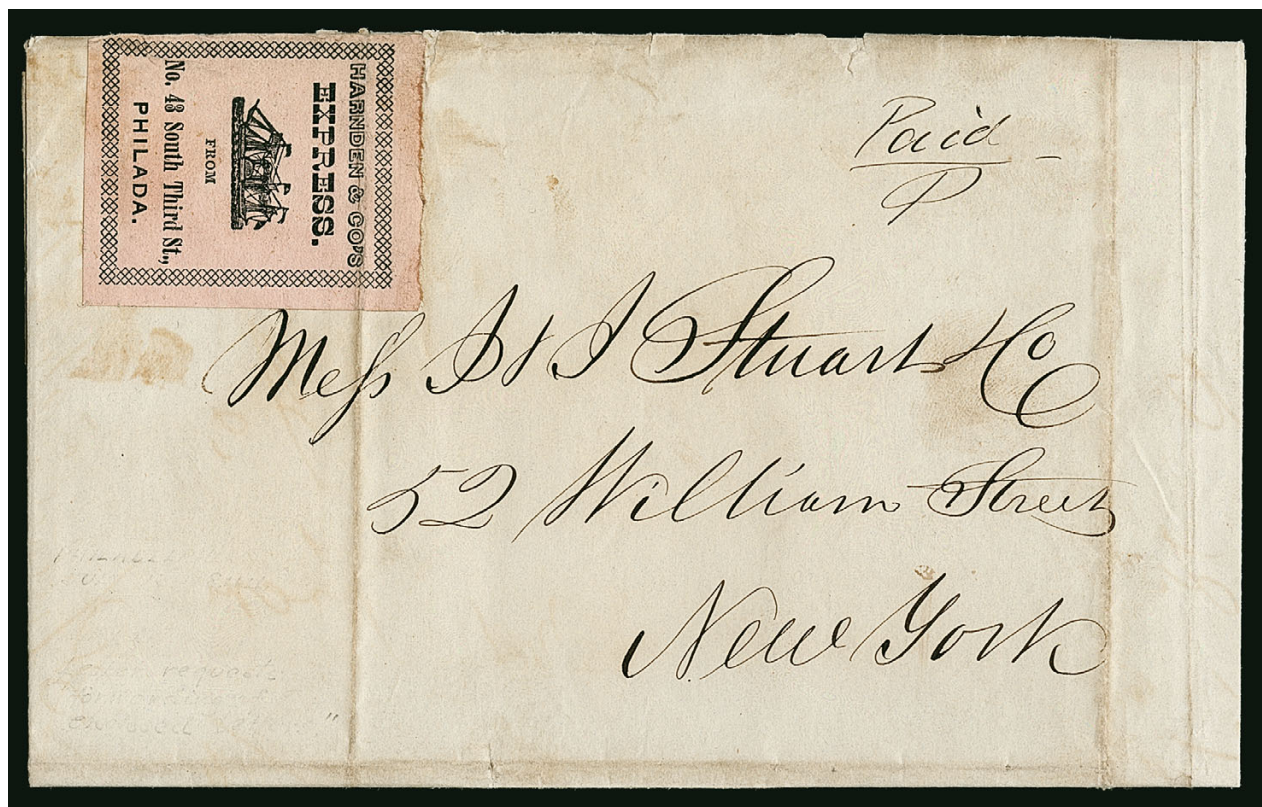 HARNDEN & CO'S
EXPRESS.
FROM
No. 43 South Third St.,
PHILADA.
Paid
P
Mess J & J Stuart & Co
52 William Street
New York
enclosed